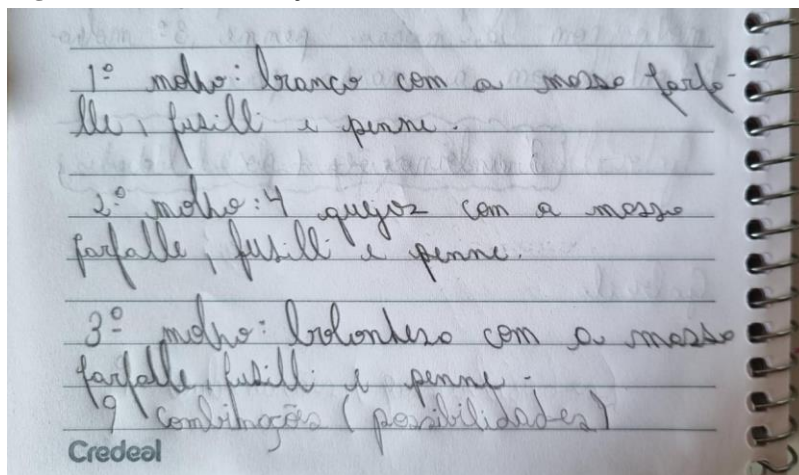 1º molho: branco com a massa farfa-
lle, fusilli e penne.
2º molho: 4 queijos com a massa
farfalle, fusilli e penne.
3º molho: bolonhesa com a massa
farfalle, fusilli e penne.
9 combinações (possibilidades)
Credeal